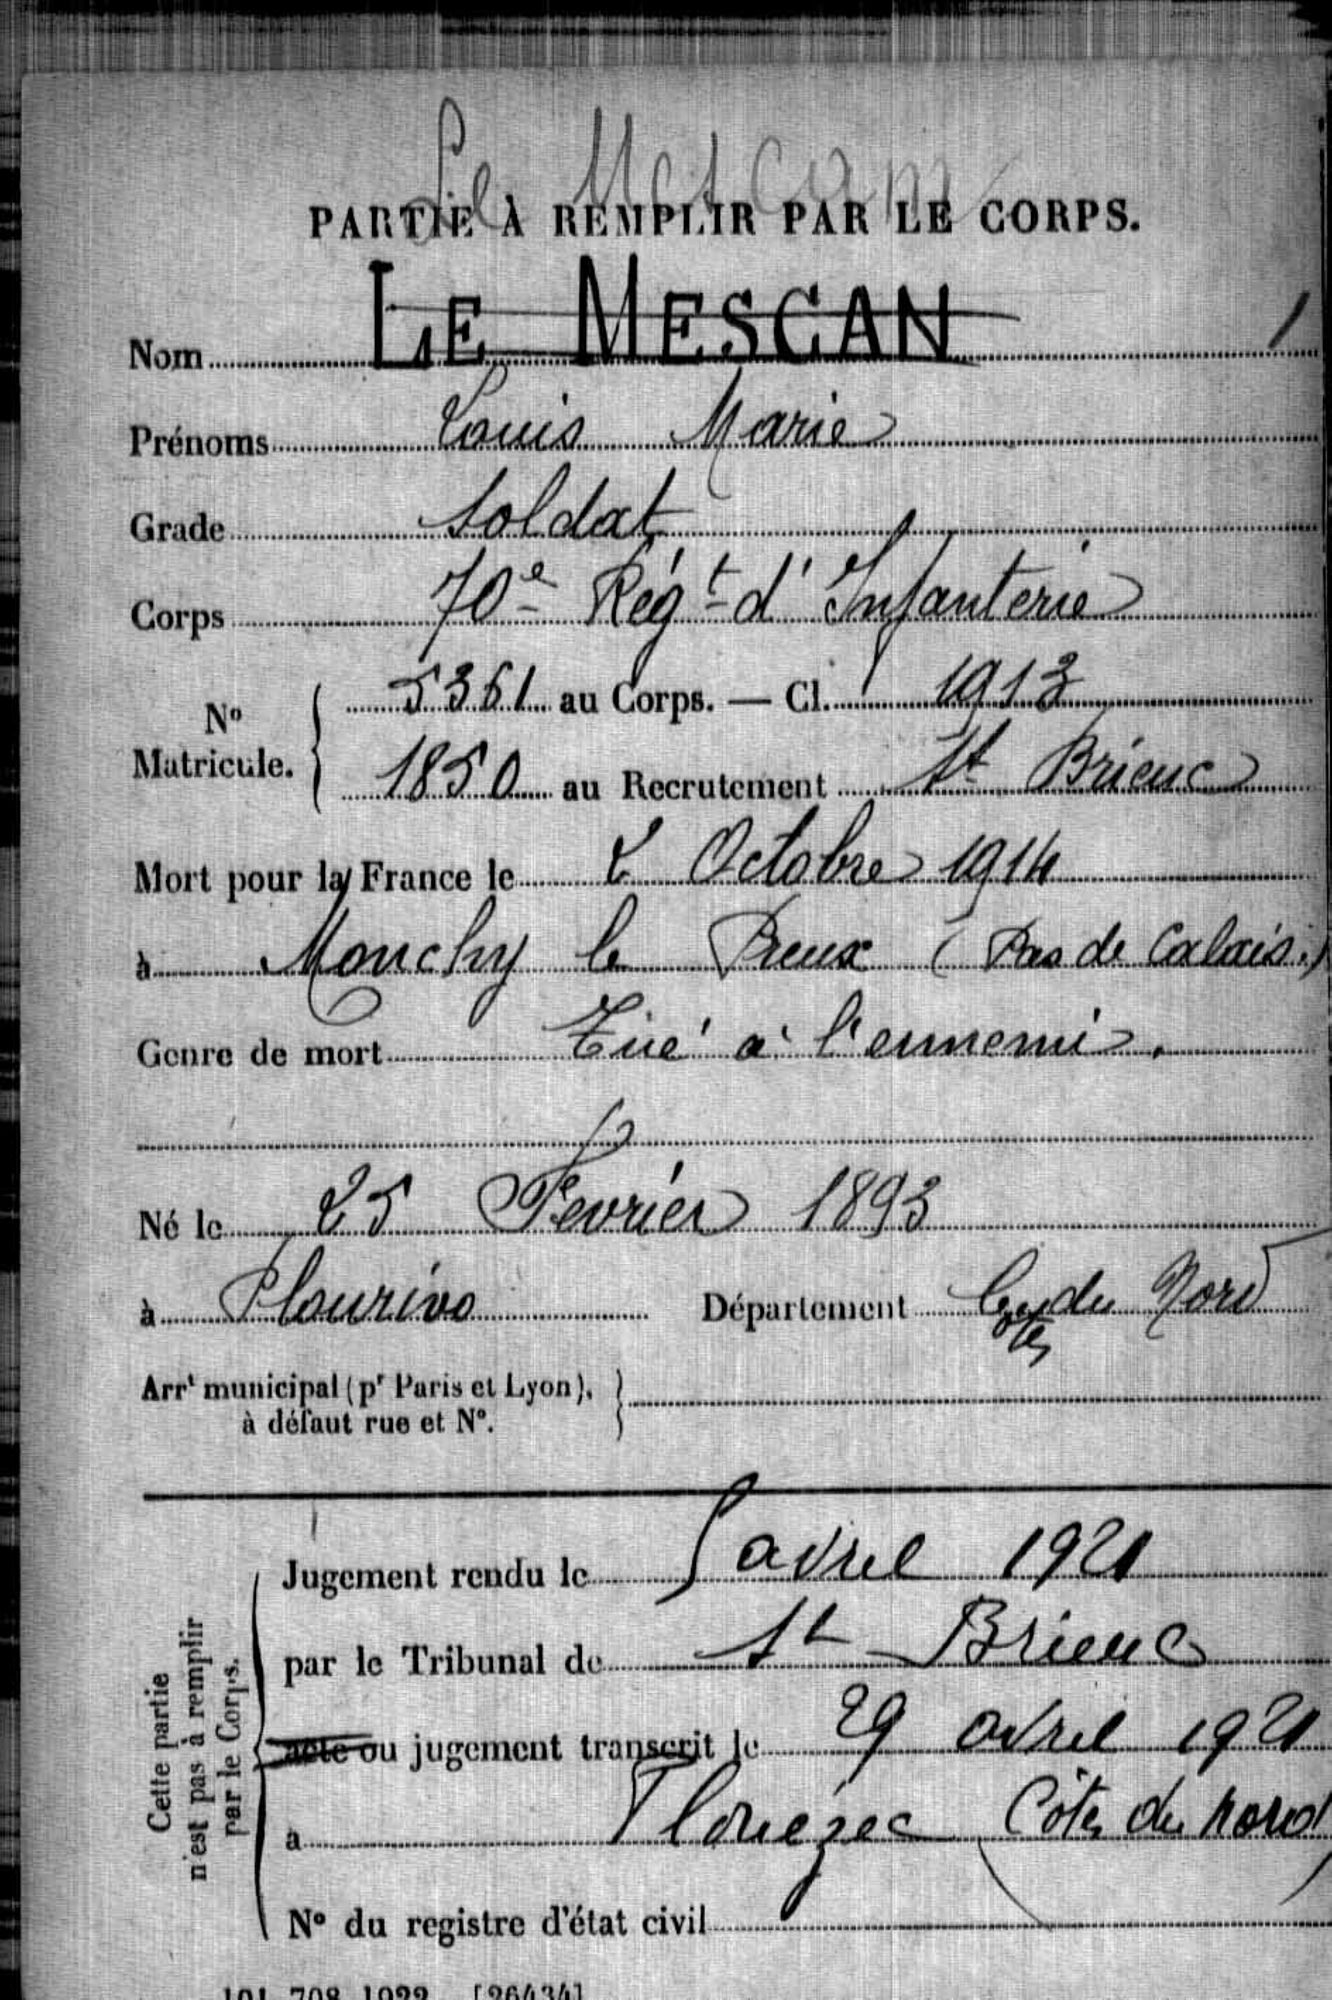 Le Mescam
PARTIE À REMPLIR PAR LE CORPS.
Nom LE MESCAN
Prénoms Louis Marie
Grade Soldat
Corps 70e Régt d'Infanterie
No Matricule. { 5361 au Corps. — Cl. 1913
1850 au Recrutement St Brieuc
Mort pour la France le 2 Octobre 1914
à Monchy le Preux (Pas de Calais.)
Genre de mort Tué à l'ennemi.
Né le 25 Fevrier 1893
à Plourivo Département Côtes du Nord
Arrt municipal (pr Paris et Lyon),
à défaut rue et No.
Cette partie
n'est pas à remplir
par le Corps.
Jugement rendu le 5 avril 1921
par le Tribunal de St Brieuc
acte ou jugement transcrit le 29 avril 1921
à Plouézec (Côtes du Nord)
No du registre d'état civil
101-708-1922. [26434]